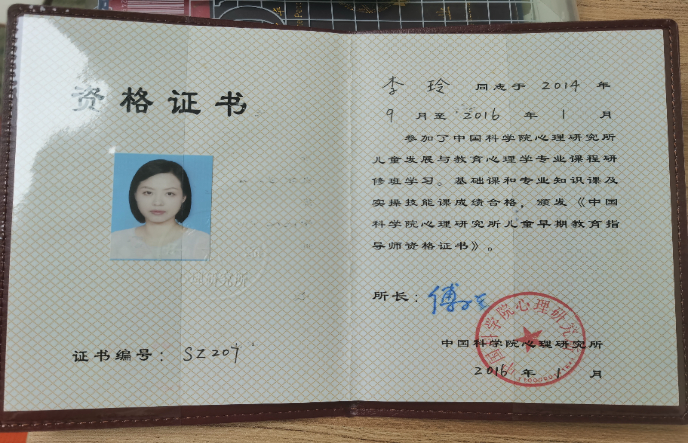 资格证书
理研究所
证书编号：SZ207
李玲 同志于 2014 年
9 月至 2016 年 1 月
参加了中国科学院心理研究所
儿童发展与教育心理学专业课程研
修班学习。基础课和专业知识课及
实操技能课成绩合格，颁发《中国
科学院心理研究所儿童早期教育指
导师资格证书》。
所长：傅小兰
中国科学院心理研究所
中国科学院心理研究所
2016 年 1 月